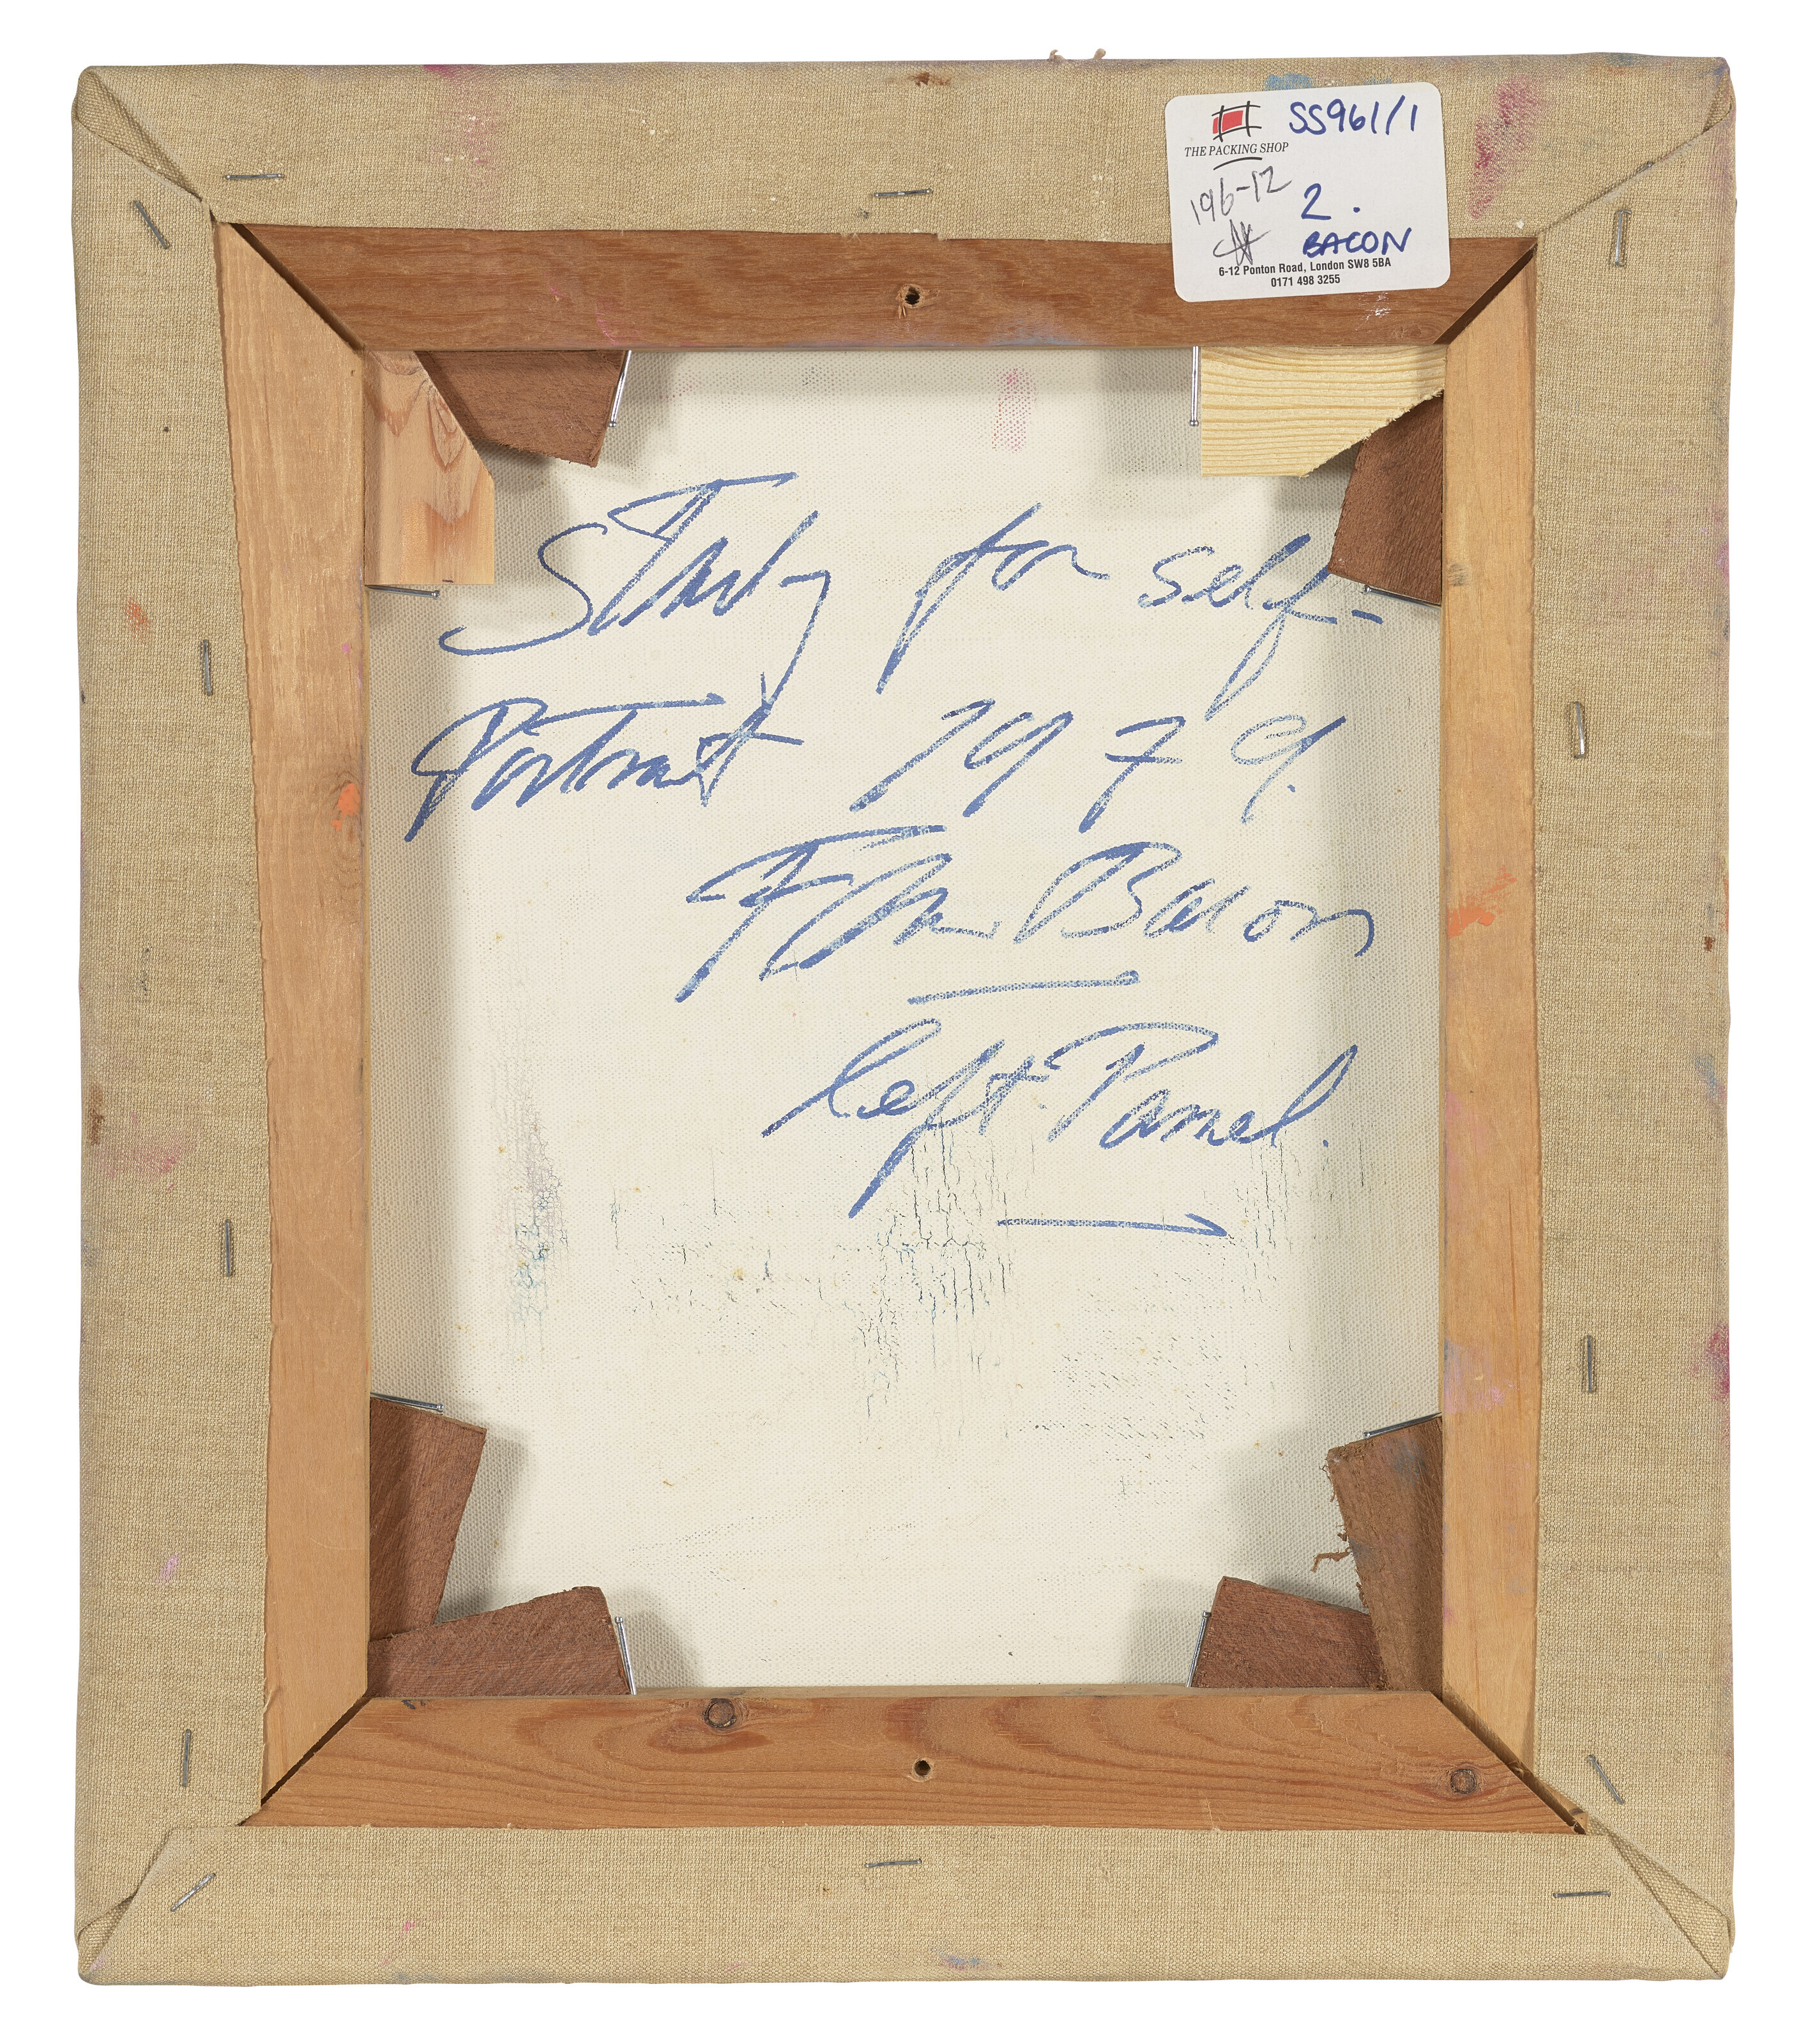 SS961/1
THE PACKING SHOP
196-12
2.
BACON
6-12 Ponton Road, London SW8 5BA
0171 498 3255
Study for self-
Portrait 1979.
Francis Bacon
left Panel.